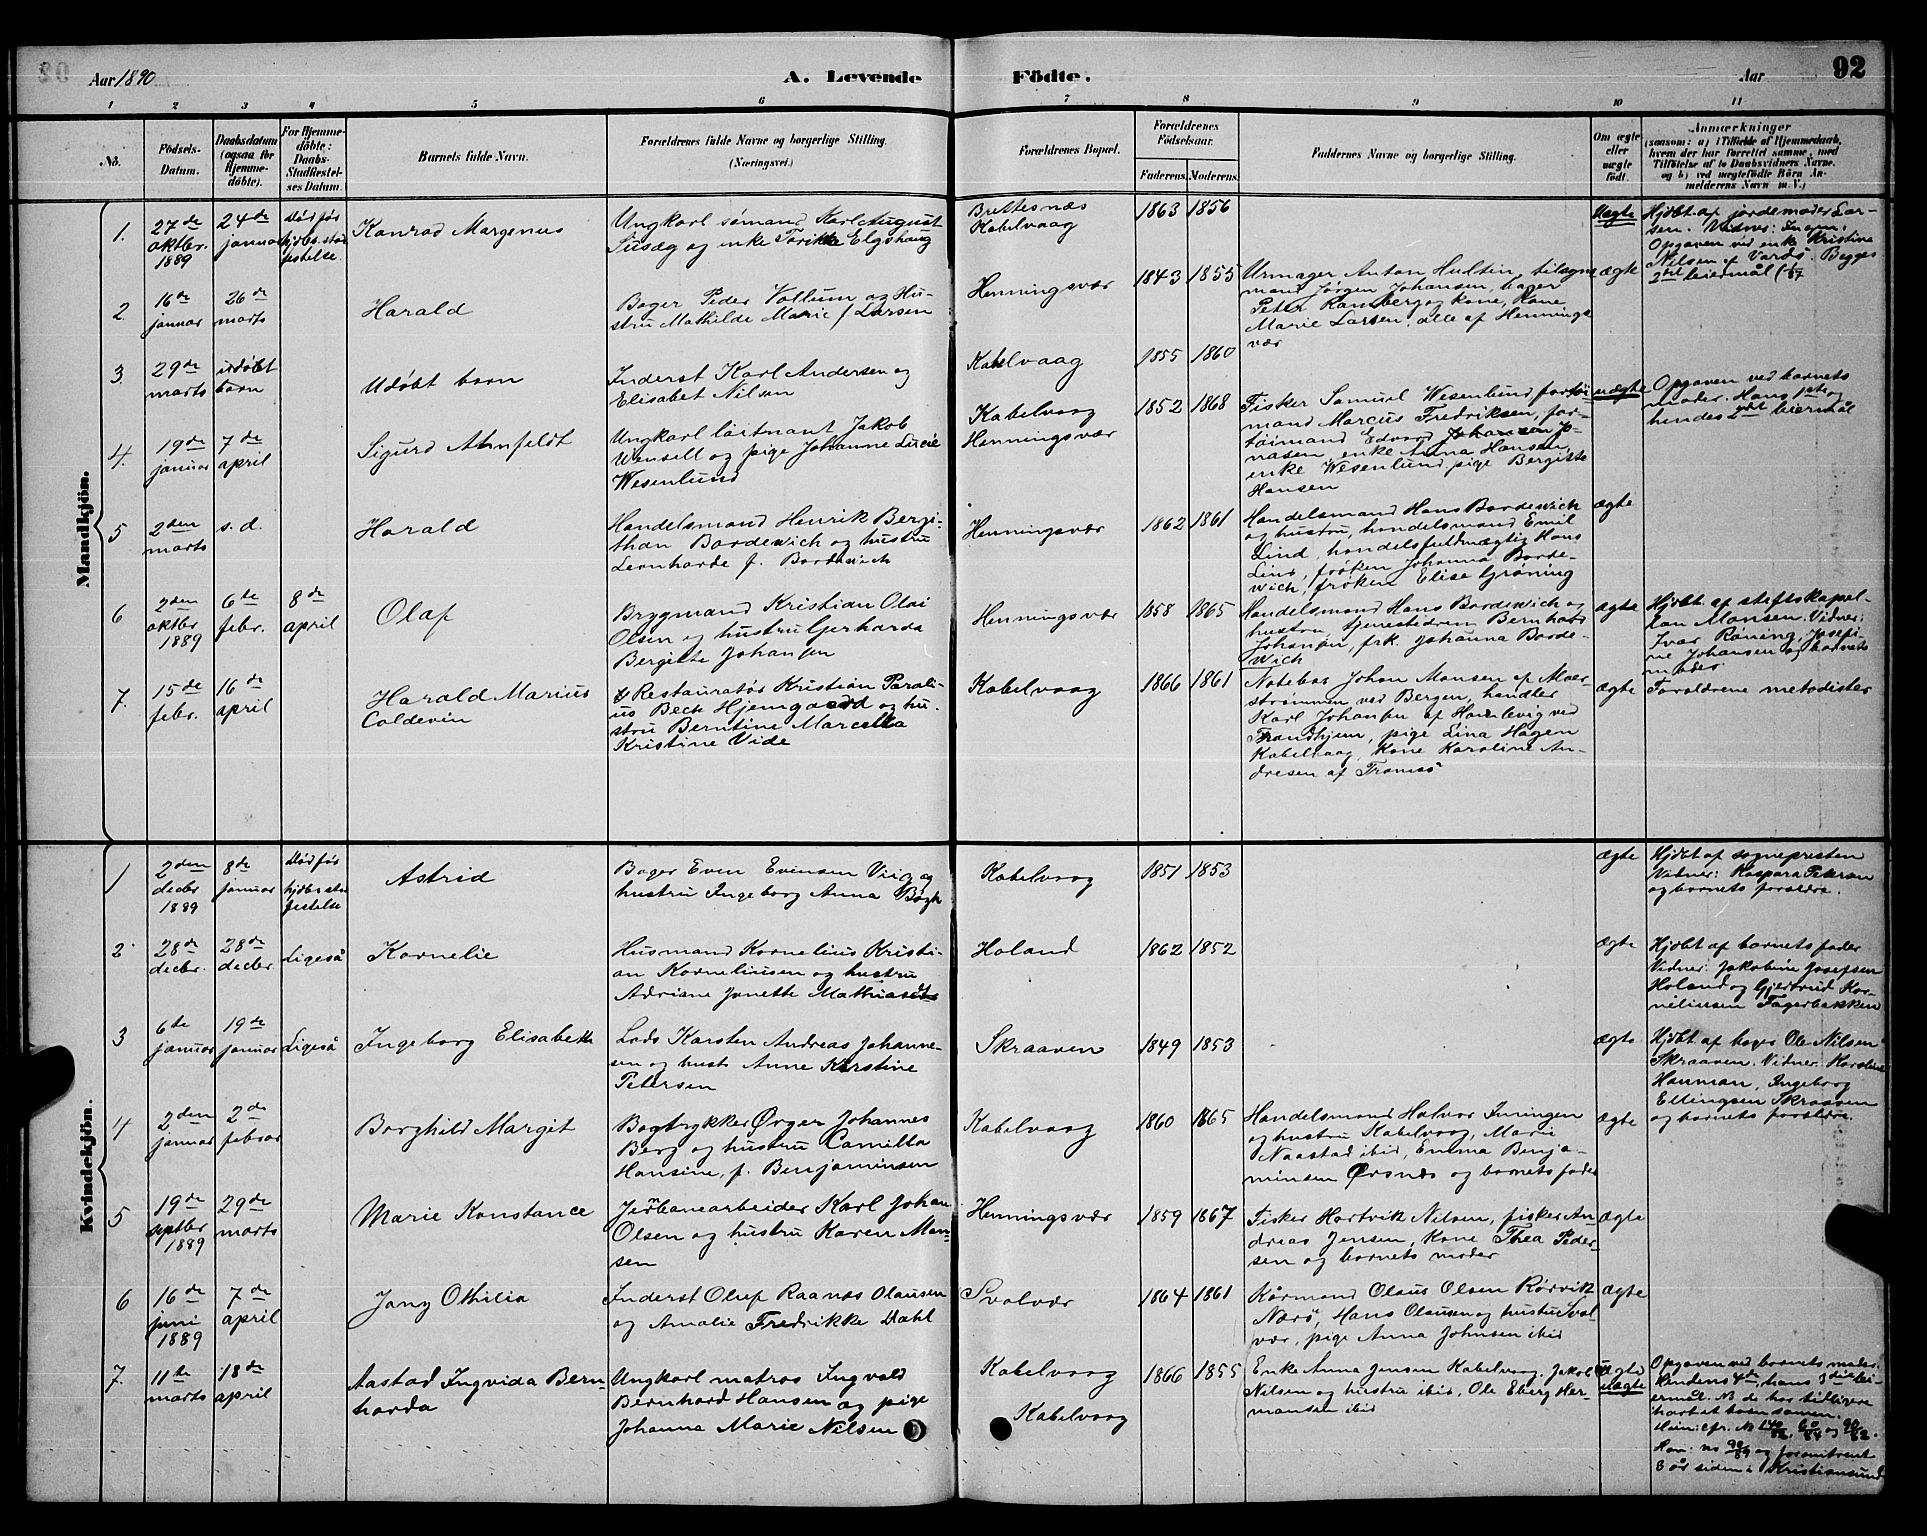 Aar 1890
A. Levende
Födte.
Aar
92
1 2 3 4 5 6 7 8 9 10 11
No.
Födsels-
Datum.
Daabsdatum
(ogsaa for
Hjemme-
döbte).
For Hjemme-
döbte:
Daabs-
Stadfæstel-
ses Datum.
Barnets fulde Navn.
Forældrenes fulde Navne og borgerlige Stilling.
(Næringsvei.)
Forældrenes Bopæl.
Forældrenes
Födselsaar.
Faderens. Moderens.
Faddernes Navne og borgerlige Stilling.
Om ægte
eller
uægte
födt.
Anmærkninger
(saasom: a) i Tilfælde af Hjemmedaab,
hvem der har forrettet samme, med
Tilföielse af to Daabsvidners Navne,
og b) ved uægtefödte Börn An-
melderens Navn m. V.)
Mandkjön.
1.
27de
oktbr.
1889
24de
januar
død før
hjdbs. stad
festelse
Konrad Margenus
Ungkarl sømand Karl August
Susæg og enke Elgshaug
Brettesnæs
Kabelvaag
1863 1856
Uægte
Hjdbt af jordemoder Lar-
sen. Vidner: Ingen.
Opgaven ved enke Kristine
Nilsen af Vardø. Begges
2det leiermål
2.
16de
januar
26de
marts
Harald
Bager Peder Vollum og Hu-
stru Mathilde Marie f. Larsen
Henningsvær
1843 1855
Urmager Anton Hultin, tilsyns
mand Jørgen Johansen, bager
Peter Ramberg og kone, Kone
Marie Larsen, alle af Hennings
vær
ægte
3.
29de
marts
udøbt
barn
Udøbt barn
Inderst Karl Andersen og
Elisabet Nilsen
Kabelvaag
1855 1860
4.
19de
januar
7de
april
Sigurd Ahnfeldt
Ungkarl løitnant Jakob
Wensell og pige Johanne Lucie
Wesenlund
Kabelvaag
Henningsvær
1852 1868
Fisker Samuel Wesenlund, fartøi
mand Marcus Fredriksen, far-
tøimand Edvard Johansen Jo-
nasen, enke Anna Hansen,
enke Wesenlund, pige Bergitte
Hansen
uægte
Opgaven ved barnets
moder. Hans 1ste og
hendes 2det leiermål
5
2den
marts
s. d.
Harald
Handelsmand Henrik Bergi-
than Bordewich og hustru
Leonharde f. Bordewich
Henningsvær
1862 1861
Handelsmand Hans Bordewich
og hustru, handelsmand Emil
Lind, handelsfuldmægtig Hans
Lind, frøken Johanna Borde-
wich, frøken Elise Grøning
ægte
6
2den
oktbr
1889
6te
febr.
8de
april
Olaf
Brygmand Kristian Olai
Olsen og hustru Gerharda
Bergitte Johansen
Henningsvær
1858 1865
Handelsmand Hans Bordewich og
hustru, tjenestedreng Bernhard
Johansen, frk. Johanna Borde-
wich
ægte
Hjdbt af stiftskapel-
lan Monsen. Vidner:
Ivar Røning, Josefi-
ne Johansen og barnets
moder
7.
15de
febr.
16de
april
Harald Marius
Coldevin
Restauratør Kristian Parali-
us Beck Hjemgaard og hu-
stru Berntine Marcella
Kristine Vide
Kabelvaag
1866 1861
Notebas Johan Monsen af Moer-
strømmen ved Bergen, handler
Karl Johansen af Havlevig ved
Trondhjem, pige Lina Hagen
Kabelvaag, Kone Karoline An-
dresen af Tromsø
ægte
Forældrene metodister
Kvindekjön.
1
2den
decbr
1889
8de
januar
død før
hjdbs stad
festelse
Astrid
Bager Even Evensen Vig og
hustru Ingeborg Anna Bøgh
Kabelvaag
1851 1853
ægte
Hjdbt af sognepresten
Vidner: Kaspara Petersen
og barnets forældre.
2
28de
decbr.
28de
decbr
Ligeså
Kornelie
Husmand Kornelius Kristi-
an Korneliussen og hustru
Adriane Janette Mathiasdt
Holand
1862 1852
ægte
Hjdbt af barnets fader
Vidner: Jakobine Josefsen
Holand og Gjertrud Kor-
neliussen Fagerbakken
3
6te
januar
19de
januar
Ligeså
Ingeborg Elisabeth
Lods Karsten Andreas Johanne-
sen og hust. Anne Kirstine
Petersen
Skraaven
1849 1853
ægte
Hjdbt af bager Ole Nilsen
Skraaven. Vidner: Karoline
Hanman, Ingeborg
Ellingsen Skraaven
og barnets forældre.
4
2den
januar
2de
februar
Borghild Margit
Bogtrykker Ørger Johannes
Berg og hustru Camilla
Hansine, f. Benjaminsen
Kabelvaag
1860 1865
Handelsmand Halvor Inningen
og hustru Kabelvaag, Marie
Naastad ibid, Emma Benja-
minsen Ørsnæs og barnets fader
ægte
5
19de
septbr
1889
29de
marts
Marie Konstance
Jernbanearbeider Karl Johan
Olsen og hustru Karen Mon-
sen
Henningsvær
1859 1867
Fisker Hartvik Nilsen, fisker An-
dreas Jensen, Kone Thea Peder-
sen og barnets moder
ægte
6
16de
juni
1889
7de
april
Jany Othilia
Inderst Oluf Raanes Olausen
og Amalie Fredrikke Dahl
Svolvær
1864 1861
Kårmand Olaus Olsen Rørvik
Nærø, Hans Olausen og hustru Svol
vær, pige Anna Johnsen ibid
ægte
7.
11te
marts
18de
april
Aastad Ingvida Bern-
harda
Ungkarl matros Ingvald
Bernhard Hansen og pige
Johanna Marie Nilsen
Kabelvaag
Kabelvaag
1866 1855
Enke Anna Jensen Kabelvaag, Jakob
Nilsen og hustru ibid, Ole Eberg Her-
mansen ibid
uægte
Opgaven ved barnets moder.
Hendes 4de, hans 3die lei-
ermål. NB de har tidligere
havt et barn sammen.
3 år siden i Kristiansund